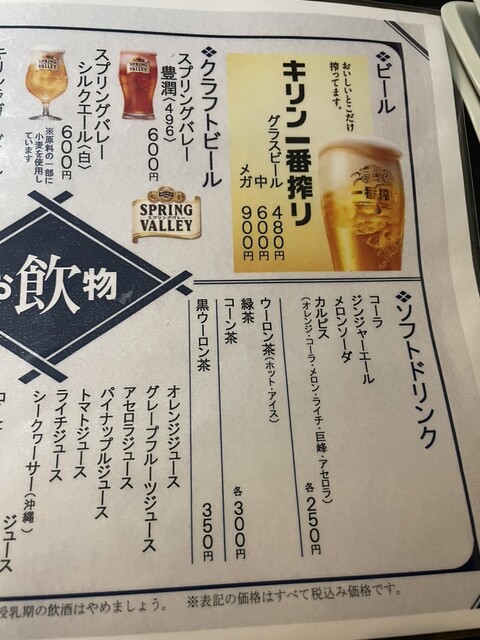 ❖ビール
おいしいとこだけ
搾ってます。
キリン一番搾り
グラスビール 480円
中 600円
メガ 900円
一番搾り
❖クラフトビール
スプリングバレー
豊潤〈496〉 600円
スプリングバレー
シルクエール〈白〉 600円
※原料の一部に
小麦を使用し
ています
SPRING
VALLEY
SPRING
VALLEY
SPRING
スプリングバレー
VALLEY
お飲物
❖ソフトドリンク
コーラ
ジンジャーエール
メロンソーダ
カルピス
(オレンジ・コーラ・メロン・ライチ・巨峰・アセロラ)
各250円
ウーロン茶(ホット・アイス)
緑茶
コーン茶
各300円
黒ウーロン茶 350円
オレンジジュース
グレープフルーツジュース
アセロラジュース
パイナップルジュース
トマトジュース
ライチジュース
シークワーサー(沖縄)
ジュース
授乳期の飲酒はやめましょう。
※表記の価格はすべて税込み価格です。